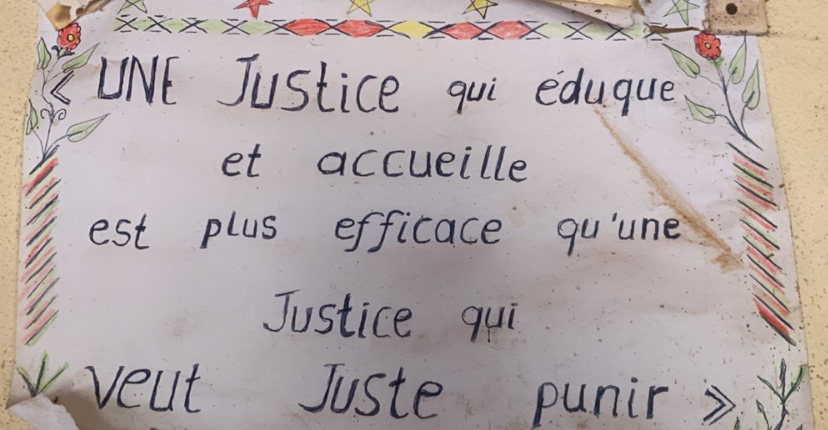 « UNE Justice qui éduque
et accueille
est plus efficace qu'une
Justice qui
veut Juste punir »